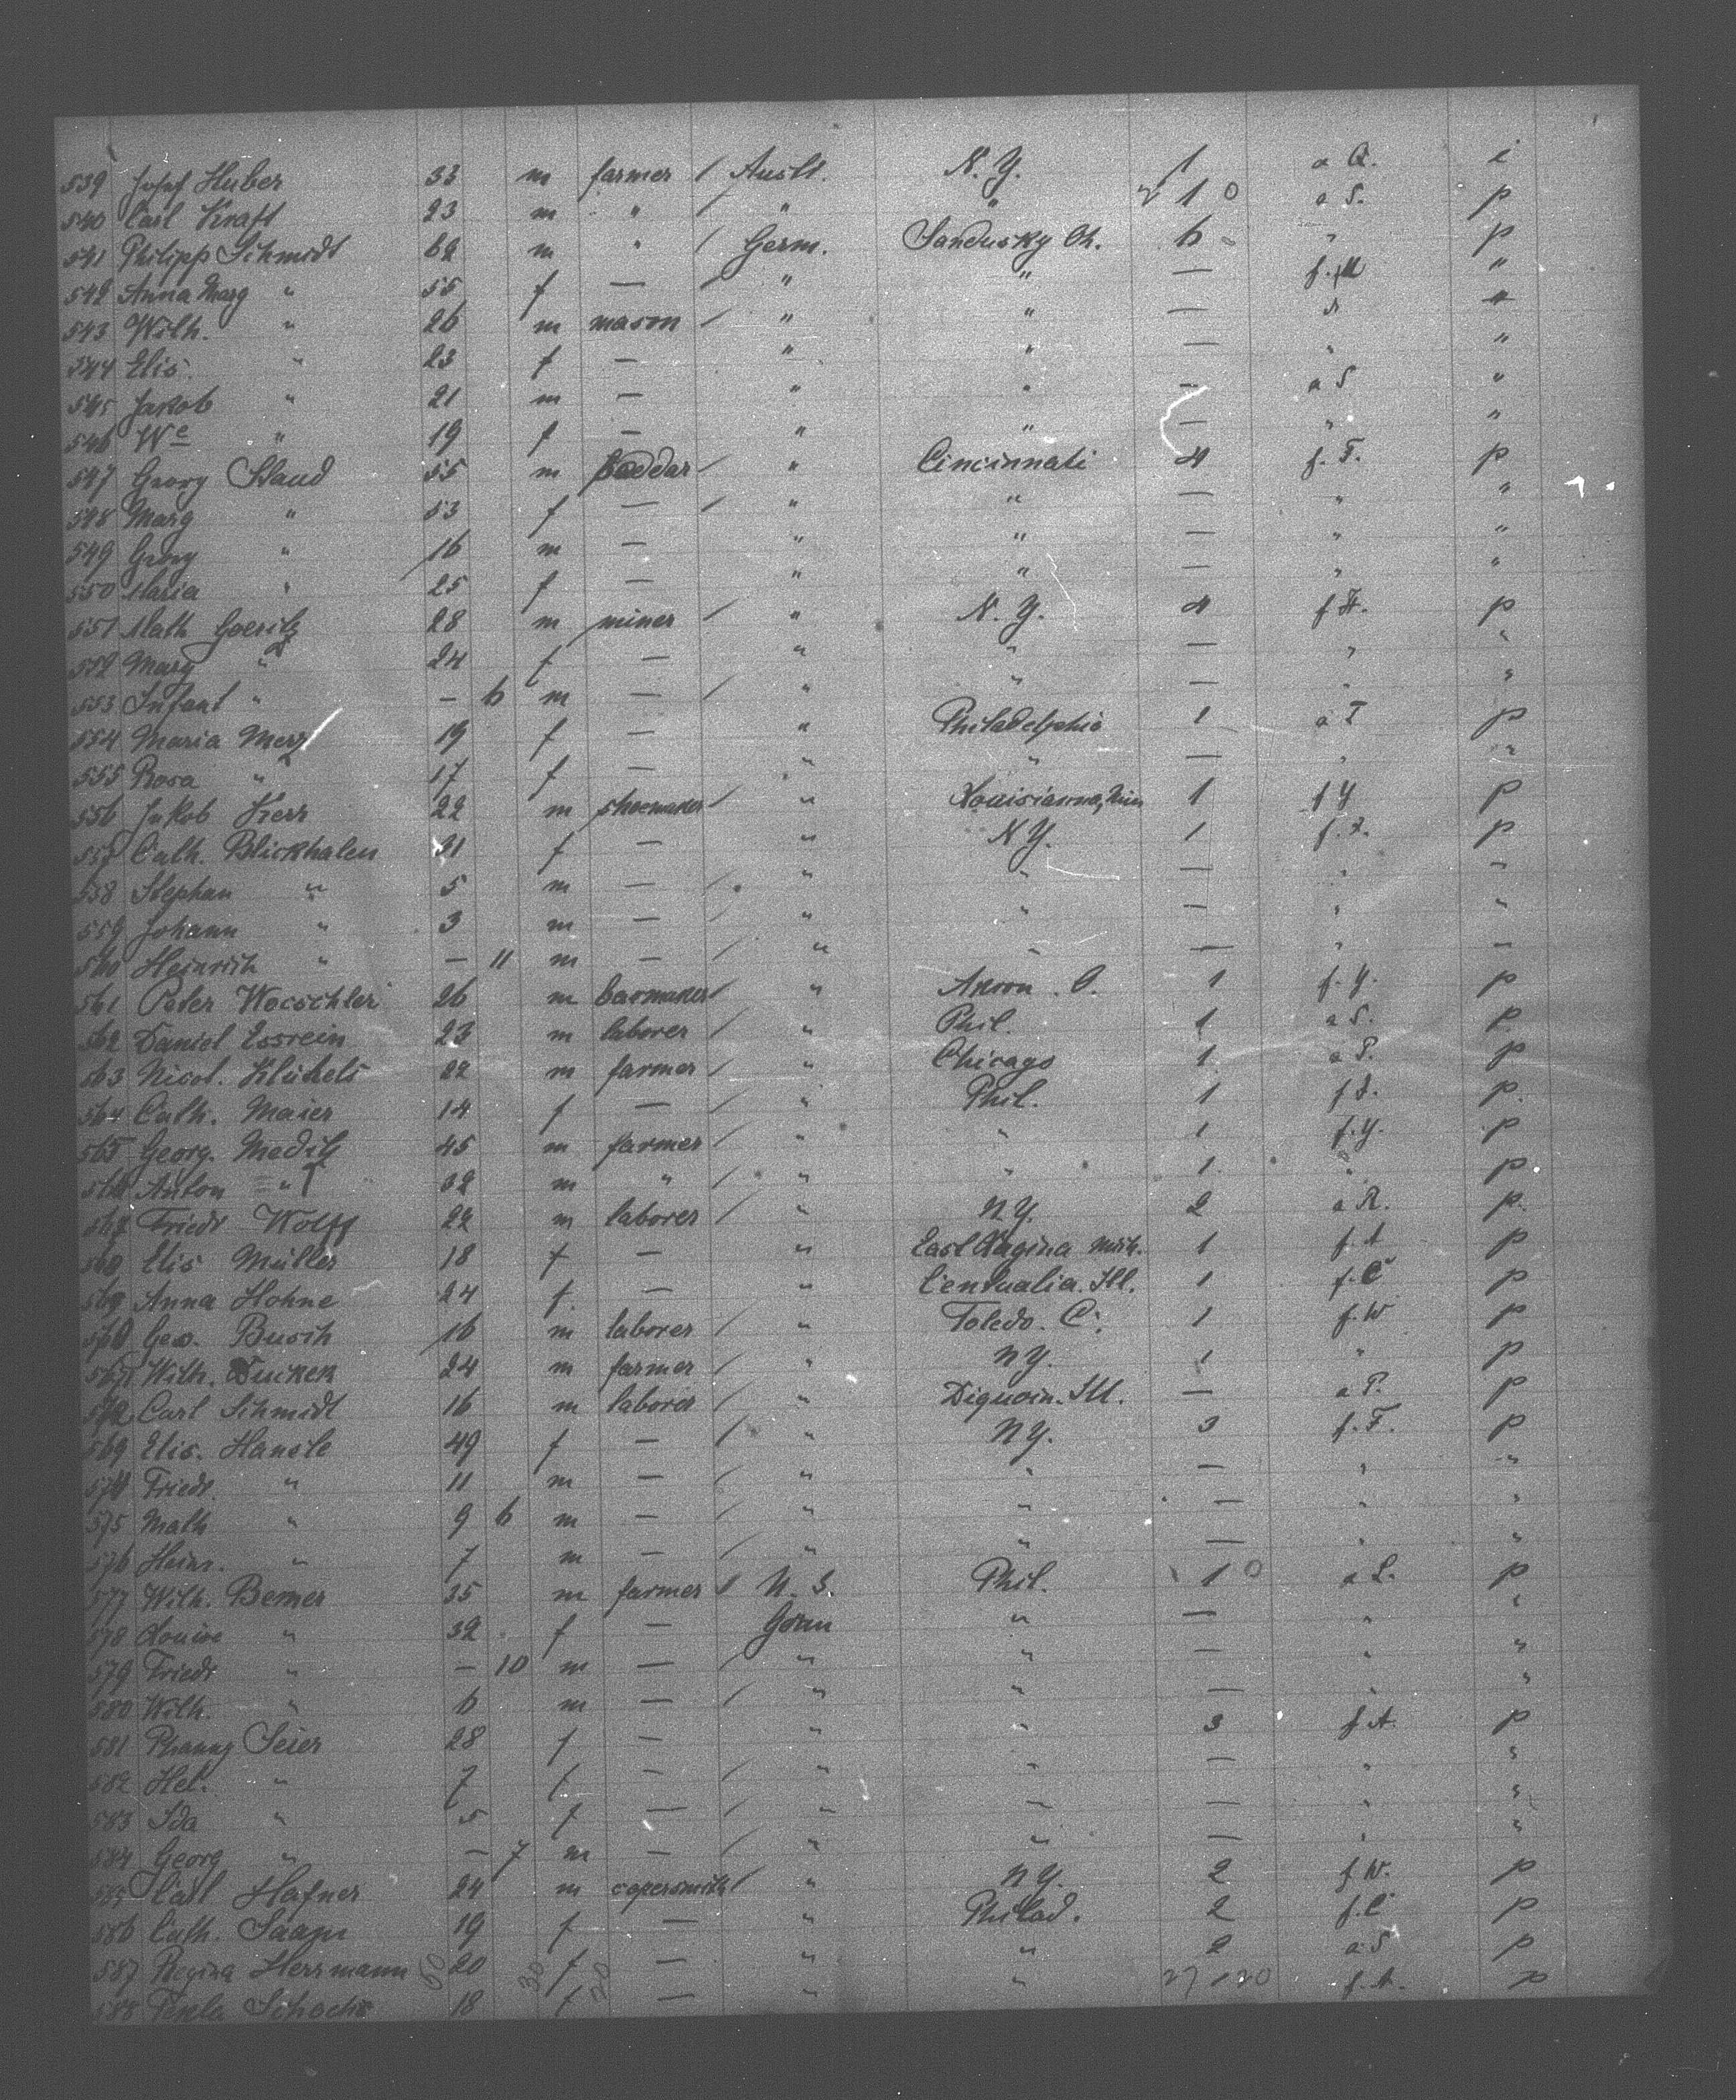 539 Josef Huber 33 m farmer / Austr. N. Y. 1 a Q. i
540 Carl Kraft 23 m " / " " 1 0 a S. p
541 Philipp Schmidt 62 m " / Germ. Sandusky Oh. 6 " p
542 Anna Marg " 55 f — / " " — f. M "
543 Wilh. " 26 m mason / " " — "
544 Elis. " 23 f — " " — " "
545 Jakob " 21 m — " " — a S "
546 We " 19 f — " " — " "
547 Georg Staud 55 m / " Cincinnati 4 f. F. p
548 Marg " 53 f — / " " — " "
549 Georg " 16 m — " " — " "
550 Maria " 25 f — " " — " "
551 Math Goeritz 28 m miner / " N. Y. 4 f H. p
552 Marg " 24 f — " " — " "
553 Infant " — 6 m — / " " — " "
554 Maria Merz 19 f — " Philadelphia 1 a T p
555 Rosa " 17 f — " " — " "
556 Jakob Kerr 22 m shoemaker / " Louisianna, 1 f Y p
557 Cath. Blickhalen 31 f — " N Y. 1 f. p
558 Stephan " 5 m — / " " — " "
559 Johann " 3 m — / " " — " "
560 Heinrich " — 11 m — / " " — " "
561 Peter Woeschler 26 m / " Akron . O. 1 f. Y. p
562 Daniel Essrein 23 m laborer / " Phil. 1 a S. p
563 Nicol. Klükels 22 m farmer / " Chicago 1 a P. p
564 Cath. Maier 14 f — / " Phil. 1 f p.
565 Georg. Meditz 45 m farmer / " " 1 f. Y. p
566 Anton " 32 m " / " " 1 " p
567 Friedr Wolff 22 m laborer / " N Y. 2 a R. p.
568 Elis Müller 18 f — " East Sagina Mich. 1 f. A p
569 Anna Hohne 24 f. — " Centualia. Ill. 1 f. C p
570 Geo. Busch 16 m laborer / " Toledo. 1 f. W p
571 Wilh. Duckek 24 m farmer / " N Y. 1 " p
572 Carl Schmidt 16 m laborer / " Diquoin. Ill. — a P. p
569 Elis. Hansle 49 f — / " N Y. 3 f. F. p
574 Friedr. " 11 m — / " " — " "
575 Math " 9 6 m — / " " — " "
576 Heinr. " 7 m — / " " — " "
577 Wilh. Bemer 35 m farmer / U. S. Phil. 1 0 a L. p
578 Louise " 32 f — Germ " — " "
579 Friedr " — 10 m — / " " — " "
580 Wilh. " 6 m — / " " — " "
581 Phanny Seier 28 f — " " 3 f. A. p
582 Hel. " 7 f — / " " — " "
583 Ida " 5 f — / " " — " "
584 Georg " — 7 m — / " " — " "
585 Carl Hafner 24 m copersmith / " N Y. 2 f. W. p
586 Cath. Saam 19 f — " Philad. 2 f. C p
587 Regina Herrmann 20 f — " " 2 a S p
588 Tekla Schoch 18 f — " " f. A. p